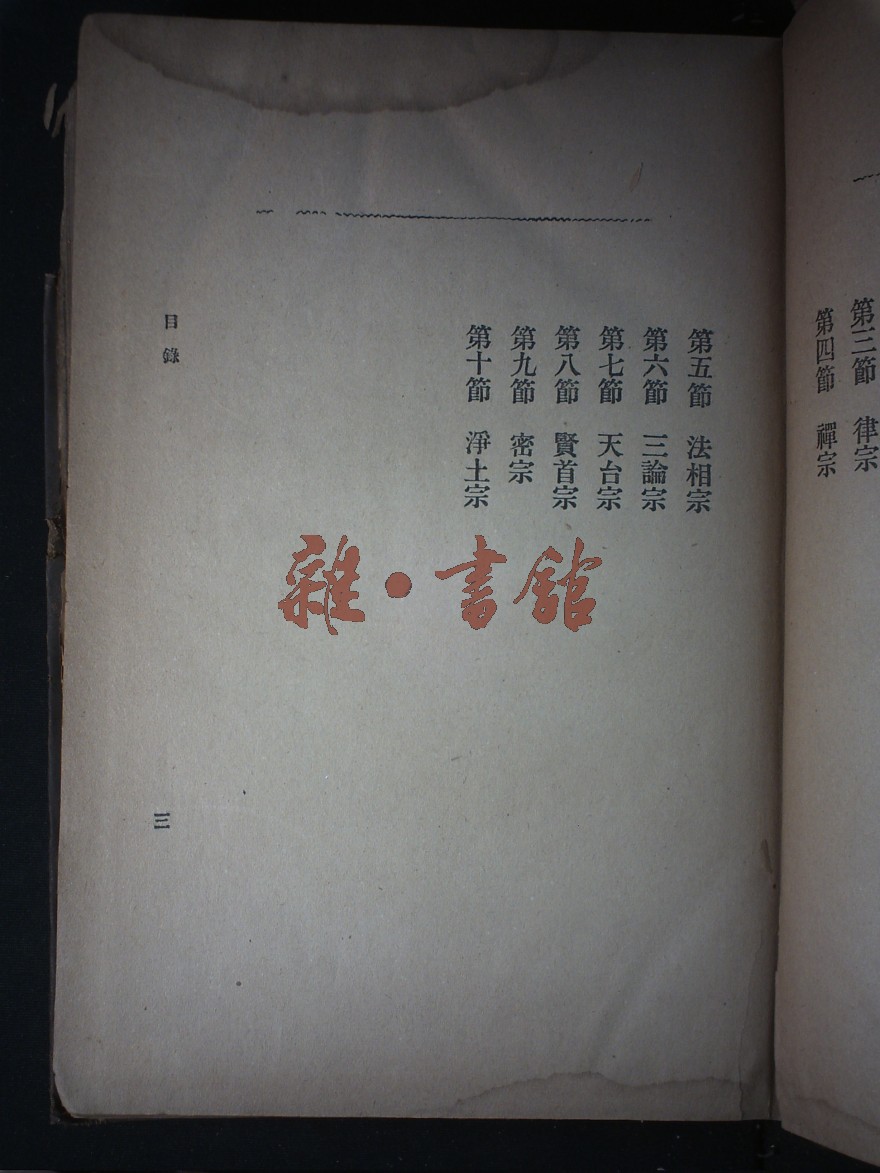 第三節　律宗
第四節　禪宗
第五節　法相宗
第六節　三論宗
第七節　天台宗
第八節　賢首宗
第九節　密宗
第十節　淨土宗
目錄
三
雜•書館